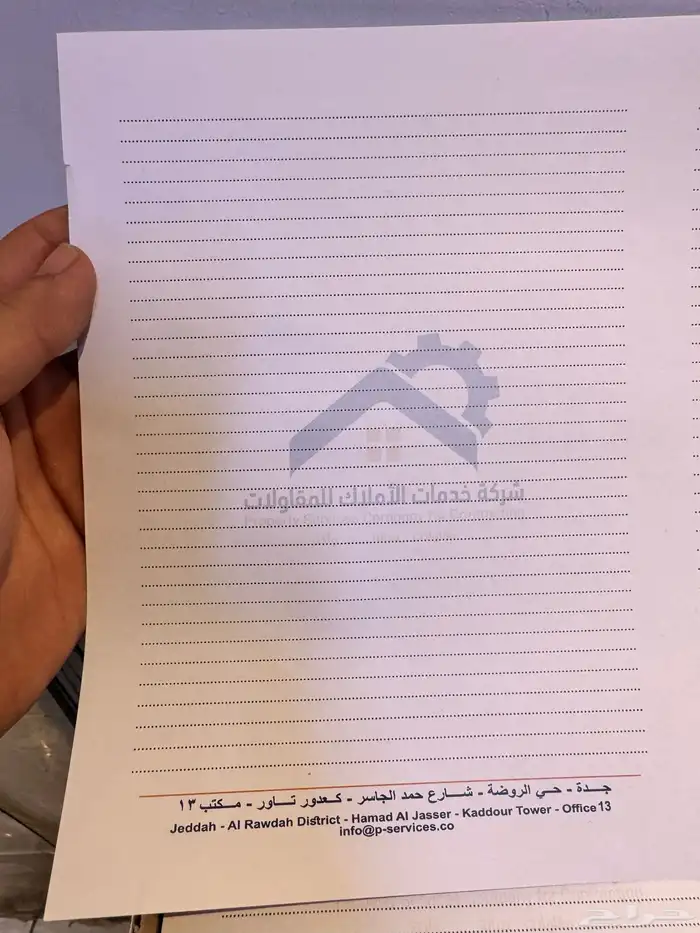 شركة خدمات الأملاك للمقاولات
Property Services Company for Contracting
جـــدة - حـي الروضة - شــــارع حمد الجاسر - كـعدور تــاور - مـكتب ١٣
Jeddah - Al Rawdah District - Hamad Al Jasser - Kaddour Tower - Office 13
info@p-services.co
for Contracting
حراج